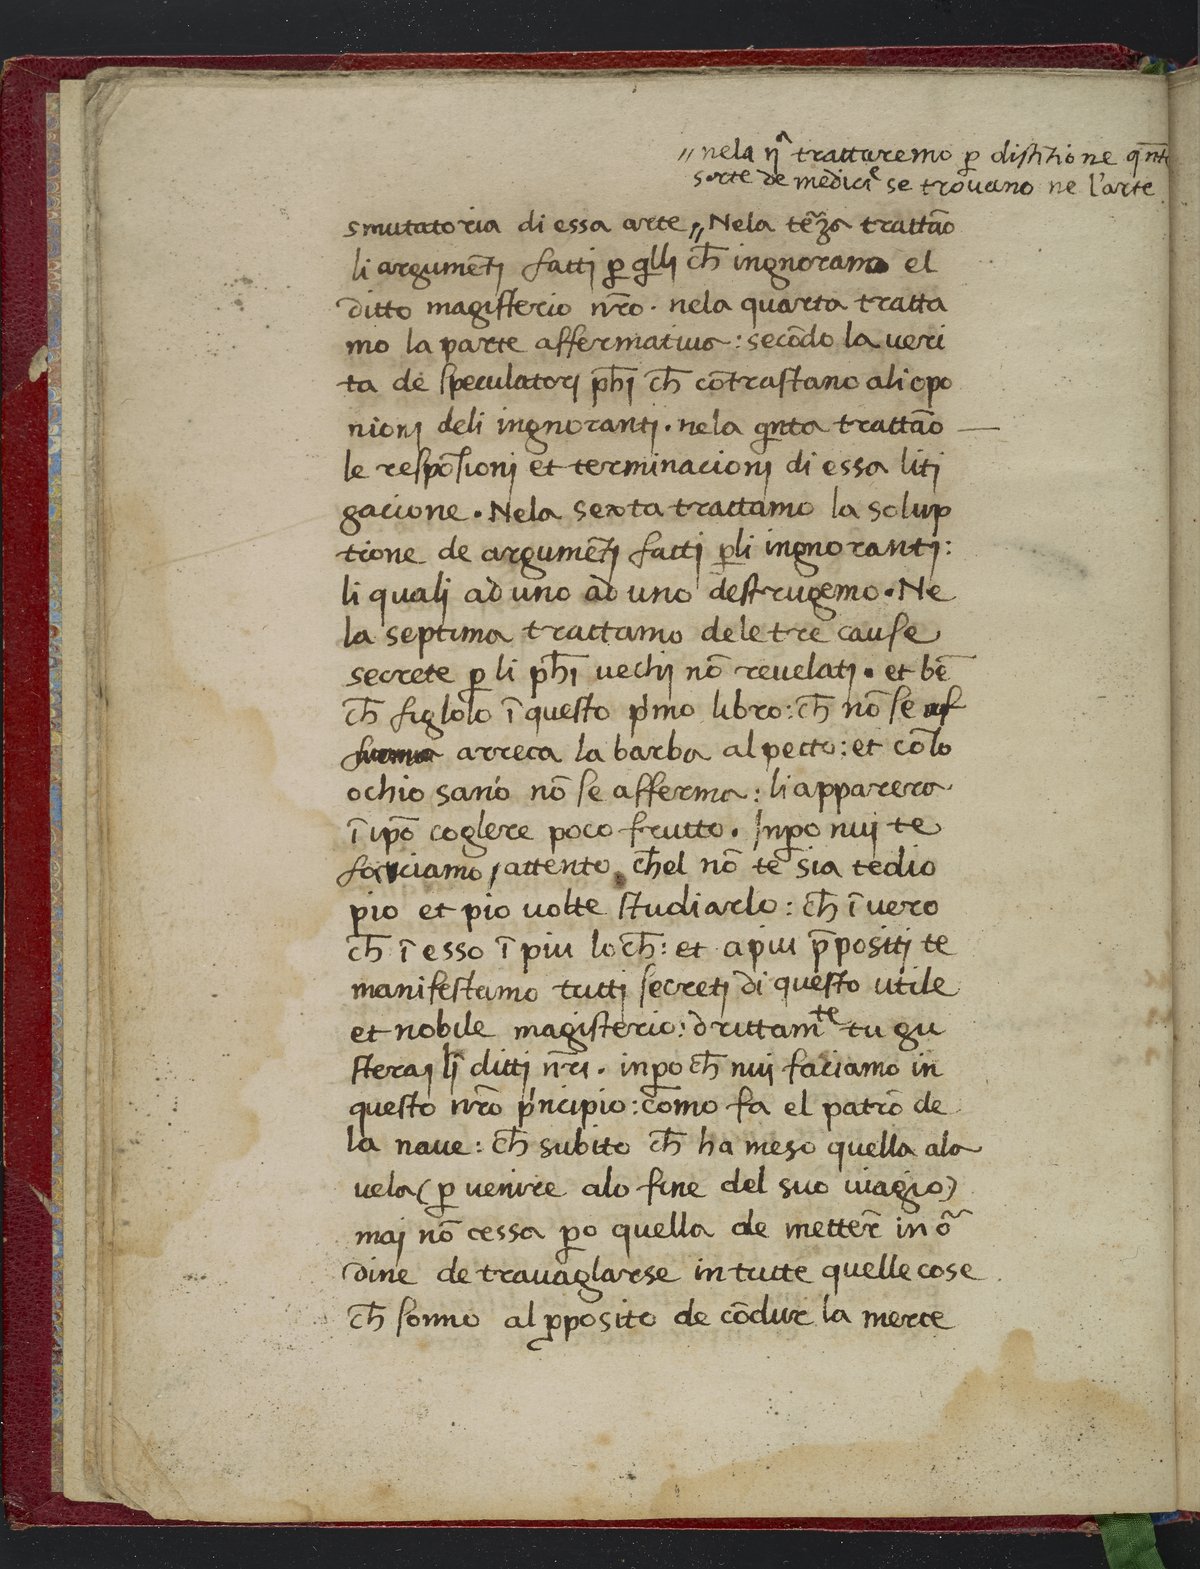 „ nela qͣ trattaremo ꝑ distĩtione qñte
sorte de mediciᵉ se trouano ne l'arte
smutatoria di essa arte „ Nela têza trattão
li argumẽtj fattj ꝑ qllj ch̃ ingnorano el
ditto magisterio nr̃o · nela quarta tratta
mo la parte affermatiua : secõdo la ueri
ta de speculatorj ph̃j ch̃ cõtrastano ali opo
nionj deli ingnorantj · nela qnta trattão —
le respõsionj et terminacionj di essa liti
gacione · Nela sexta trattamo la solup
tione de argumẽtj fattj ꝑli ingnorantj :
li qualj ad uno ad uno destrugemo · Ne
la septima trattamo dele tre cause
secrete ꝑ li ph̃j uechij nõ reuelatj · et bẽ
ch̃ figlolo ĩ questo pʼmo libro : ch̃ nõ se
arreca la barba al petto : et cõ lo
ochio sano nõ se afferma : li apparera
ĩ ip̃o coglere poco frutto · Inꝑo nuj te
faciamo attento ch̃el nõ te sia tedio
pio et pio uolte studiarlo : ch̃ ĩ uero
ch̃ ĩ esso ĩ piu loch̃ : et a piu p̃positj te
manifestamo tuttj secretj di questo utile
et nobile magisterio : drittamᵗᵉ tu gu
steraj lj dittj nr̃i · inꝑo ch̃ nuj faciamo in
questo nr̃o pʼncipio : como fa el patrõ de
la naue : ch̃ subito ch̃ ha meso quella ala
uela ( ꝑ uenire alo fine del suo uiagio )
maj nõ cessa ꝑo quella de metter̃ in õ
dine de trauaglarse in tutte quelle cose
ch̃ sonno al ꝓposito de cõdur̃ la merce